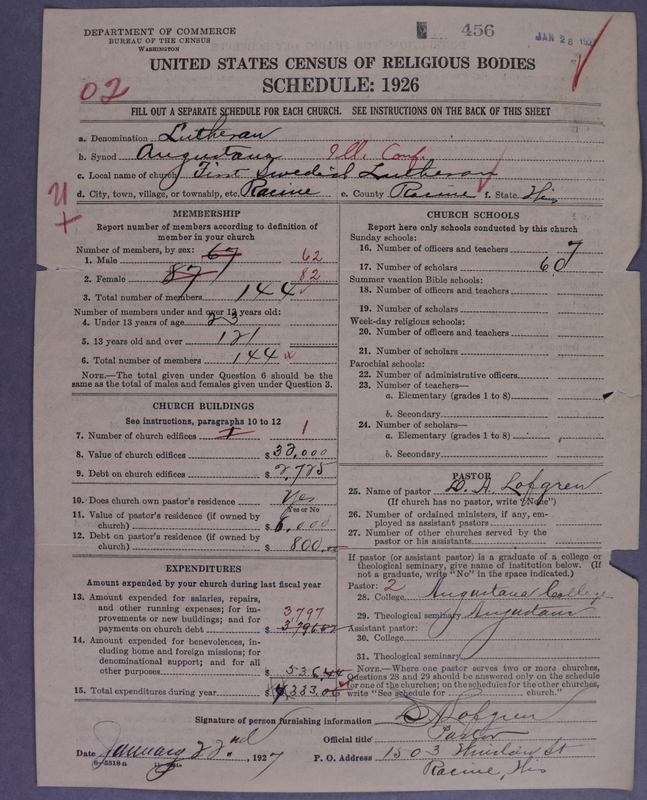 DEPARTMENT OF COMMERCE
BUREAU OF THE CENSUS
WASHINGTON
456
JAN 28 192
UNITED STATES CENSUS OF RELIGIOUS BODIES
SCHEDULE: 1926
02
FILL OUT A SEPARATE SCHEDULE FOR EACH CHURCH. SEE INSTRUCTIONS ON THE BACK OF THIS SHEET
a. Denomination Lutheran
b. Synod Augustana Ill. Conf.
c. Local name of church First Swedish Lutheran
d. City, town, village, or township, etc. Racine e. County Racine f. State Wis
MEMBERSHIP
Report number of members according to definition of
member in your church
Number of members, by sex:
1. Male 67 62
2. Female 87 82
3. Total number of members 144
Number of members under and over 13 years old:
4. Under 13 years of age 23
5. 13 years old and over 121
6. Total number of members 144 x
NOTE.—The total given under Question 6 should be
the same as the total of males and females given under Question 3.
CHURCH BUILDINGS
See instructions, paragraphs 10 to 12
7. Number of church edifices 1 1
8. Value of church edifices $ 33,000
9. Debt on church edifices $ 2,725
10. Does church own pastor's residence Yes
Yes or No
11. Value of pastor's residence (if owned by
church) $ 6,000
12. Debt on pastor's residence (if owned by
church) $ 800.00
EXPENDITURES
Amount expended by your church during last fiscal year
13. Amount expended for salaries, repairs,
and other running expenses; for im-
provements or new buildings; and for
payments on church debt $ 3797
14. Amount expended for benevolences, in-
cluding home and foreign missions; for
denominational support; and for all
other purposes $ 536.44
15. Total expenditures during year $ 4,333.06
CHURCH SCHOOLS
Report here only schools conducted by this church
Sunday schools:
16. Number of officers and teachers 7
17. Number of scholars 60
Summer vacation Bible schools:
18. Number of officers and teachers
19. Number of scholars
Week-day religious schools:
20. Number of officers and teachers
21. Number of scholars
Parochial schools:
22. Number of administrative officers
23. Number of teachers—
a. Elementary (grades 1 to 8)
b. Secondary
24. Number of scholars—
a. Elementary (grades 1 to 8)
b. Secondary
PASTOR
25. Name of pastor D. A. Lofgren
(If church has no pastor, write "None")
26. Number of ordained ministers, if any, em-
ployed as assistant pastors
27. Number of other churches served by the
pastor or his assistants
If pastor (or assistant pastor) is a graduate of a college or
theological seminary, give name of institution below. (If
not a graduate, write "No" in the space indicated.)
Pastor: 2
28. College Augustana College
29. Theological seminary Augustana
Assistant pastor:
30. College
31. Theological seminary
NOTE.—Where one pastor serves two or more churches,
Questions 28 and 29 should be answered only on the schedule
for one of the churches; on the schedules for the other churches,
write "See schedule for church."
Signature of person furnishing information D A Lofgren
Official title Pastor
Date January 22nd, 1927 P. O. Address 1503 Winslow St
Racine, Wis